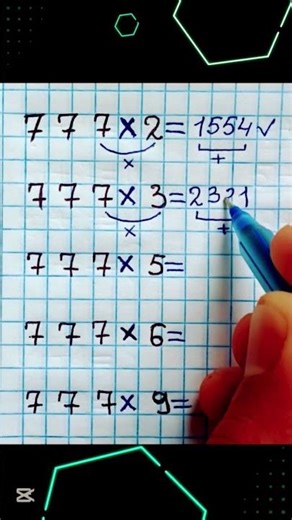 777×2=1554✓
×
+
777×3=2331
×
+
777×5=
777×6=
777×9=